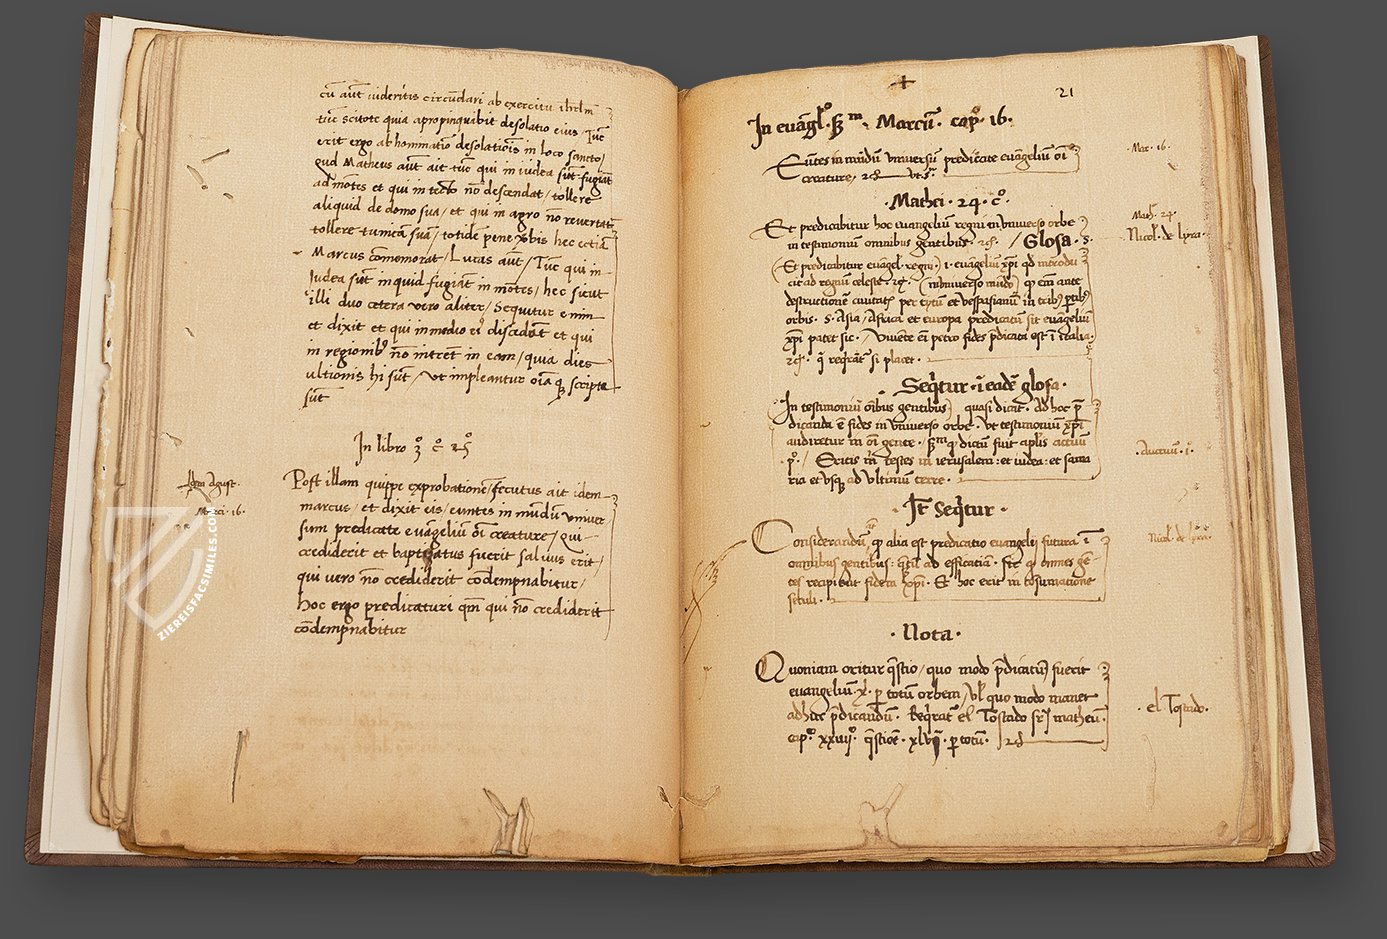 cū aūt uideritis circūdari ab exercitu ihrlm
tūc scitote quia apropinquibit desolatio eius / Tūc
erit ergo abhominatio desolatiōis in loco sancto /
qud Matheus aūt ait tūc qui in iudea sūt fugiāt
ad mōtes et qui in tecto nō descendat / tollere
aliquid de domo sua / et qui in agro nō revertat
tollere tunicā suā / totidē pene v̄bis hec etiā
Marcus cōmemorat / Lucas aūt / Tūc qui in
Judea sūt inquid fugiāt in mōtes / hec sicut
illi duo cetera vero aliter / Sequitur enim
et dixit et qui in medio ei⁹ discedāt et qui
in regionib⁹ nō intrēt in eam / quia dies
ultionis hi sūt / vt impleantur oīa q̄ scripta
sūt
In libro 3º cº 25º
Agust.
Marci. 16.
Post illam quippe exprobationē / secutus ait idem
marcus / et dixit eis / euntes in mūdū vniuer
sum predicate euāgeliū oī creature / qui
crediderit et baptizatus fuerit saluus erit /
qui vero nō crediderit cōdempnabitur /
Hoc ergo predicaturi qm̄ qui nō crediderit
cōdempnabitur
ZIEREISFACSIMILES.COM
+
21
In euāgl.º Marcū. capº. 16.
Mar. 16.
Eūtes in mūdū vniuersū predicate euāgeliū oī
creature,
.Mathei. 24. cº.
Math. 24.
Et predicabitur hoc euangeliū regni in vniuerso orbe
Nicol. de lyra.
in testimoniū omnibus gentibus. / Glosa. S.
(Et predicabitur euāgel. regni) i. euāgeliū xp̄i qd introdu
cit ad regnū celeste. (in vniuerso mūdo) q̄ etiā ante
destructionē ciuitat per tytū et vespasianū in trib⁹ p̄tib⁹
orbis. S. Asia / Africa et europa predicatū sit euāgeliū
xp̄i patet sic. / Viuēte eī petro fides p̄dicata est ī ytalia.
q̄ reqrāt si placet.
. Seq̄tur. ī eadē glosa.
In testimoniū oībus gentibus) quasi dicit. ad hoc p̄
dicanda ē fides in vniuerso orbe. vt testimoniū xp̄i
audiretur in oī gente. q̄ dictū fuit ap̄lis actuū
Actuum. 1.
p.º / Eritis m̄ testes in ierusalem: et iudea: et sama
ria et vsq̄ ad vltimū terre.
. It̄ Seq̄tur .
Nicol. de lyra.
Considerandū q̄ alia est predicatio euangelij futura ī
omnibus gentibus: q̄tū ad efficatiā. sic q̄ omnes gē
tes recipient fidem xp̄i. Et hoc erit in cōsumatione
seculi.
. Nota .
Quoniam oritur q̄stio / quo modo p̄dicatū fuerit
euangeliū x̄. p̄ totū orbem / vl̄ quo modo manet
. el Tostado.
adhuc p̄dicandū. Reqrāt el Tostado sr̄ matheū.
capº. xxiiijº. q̄stiōe. xlvij. p̄ totū.